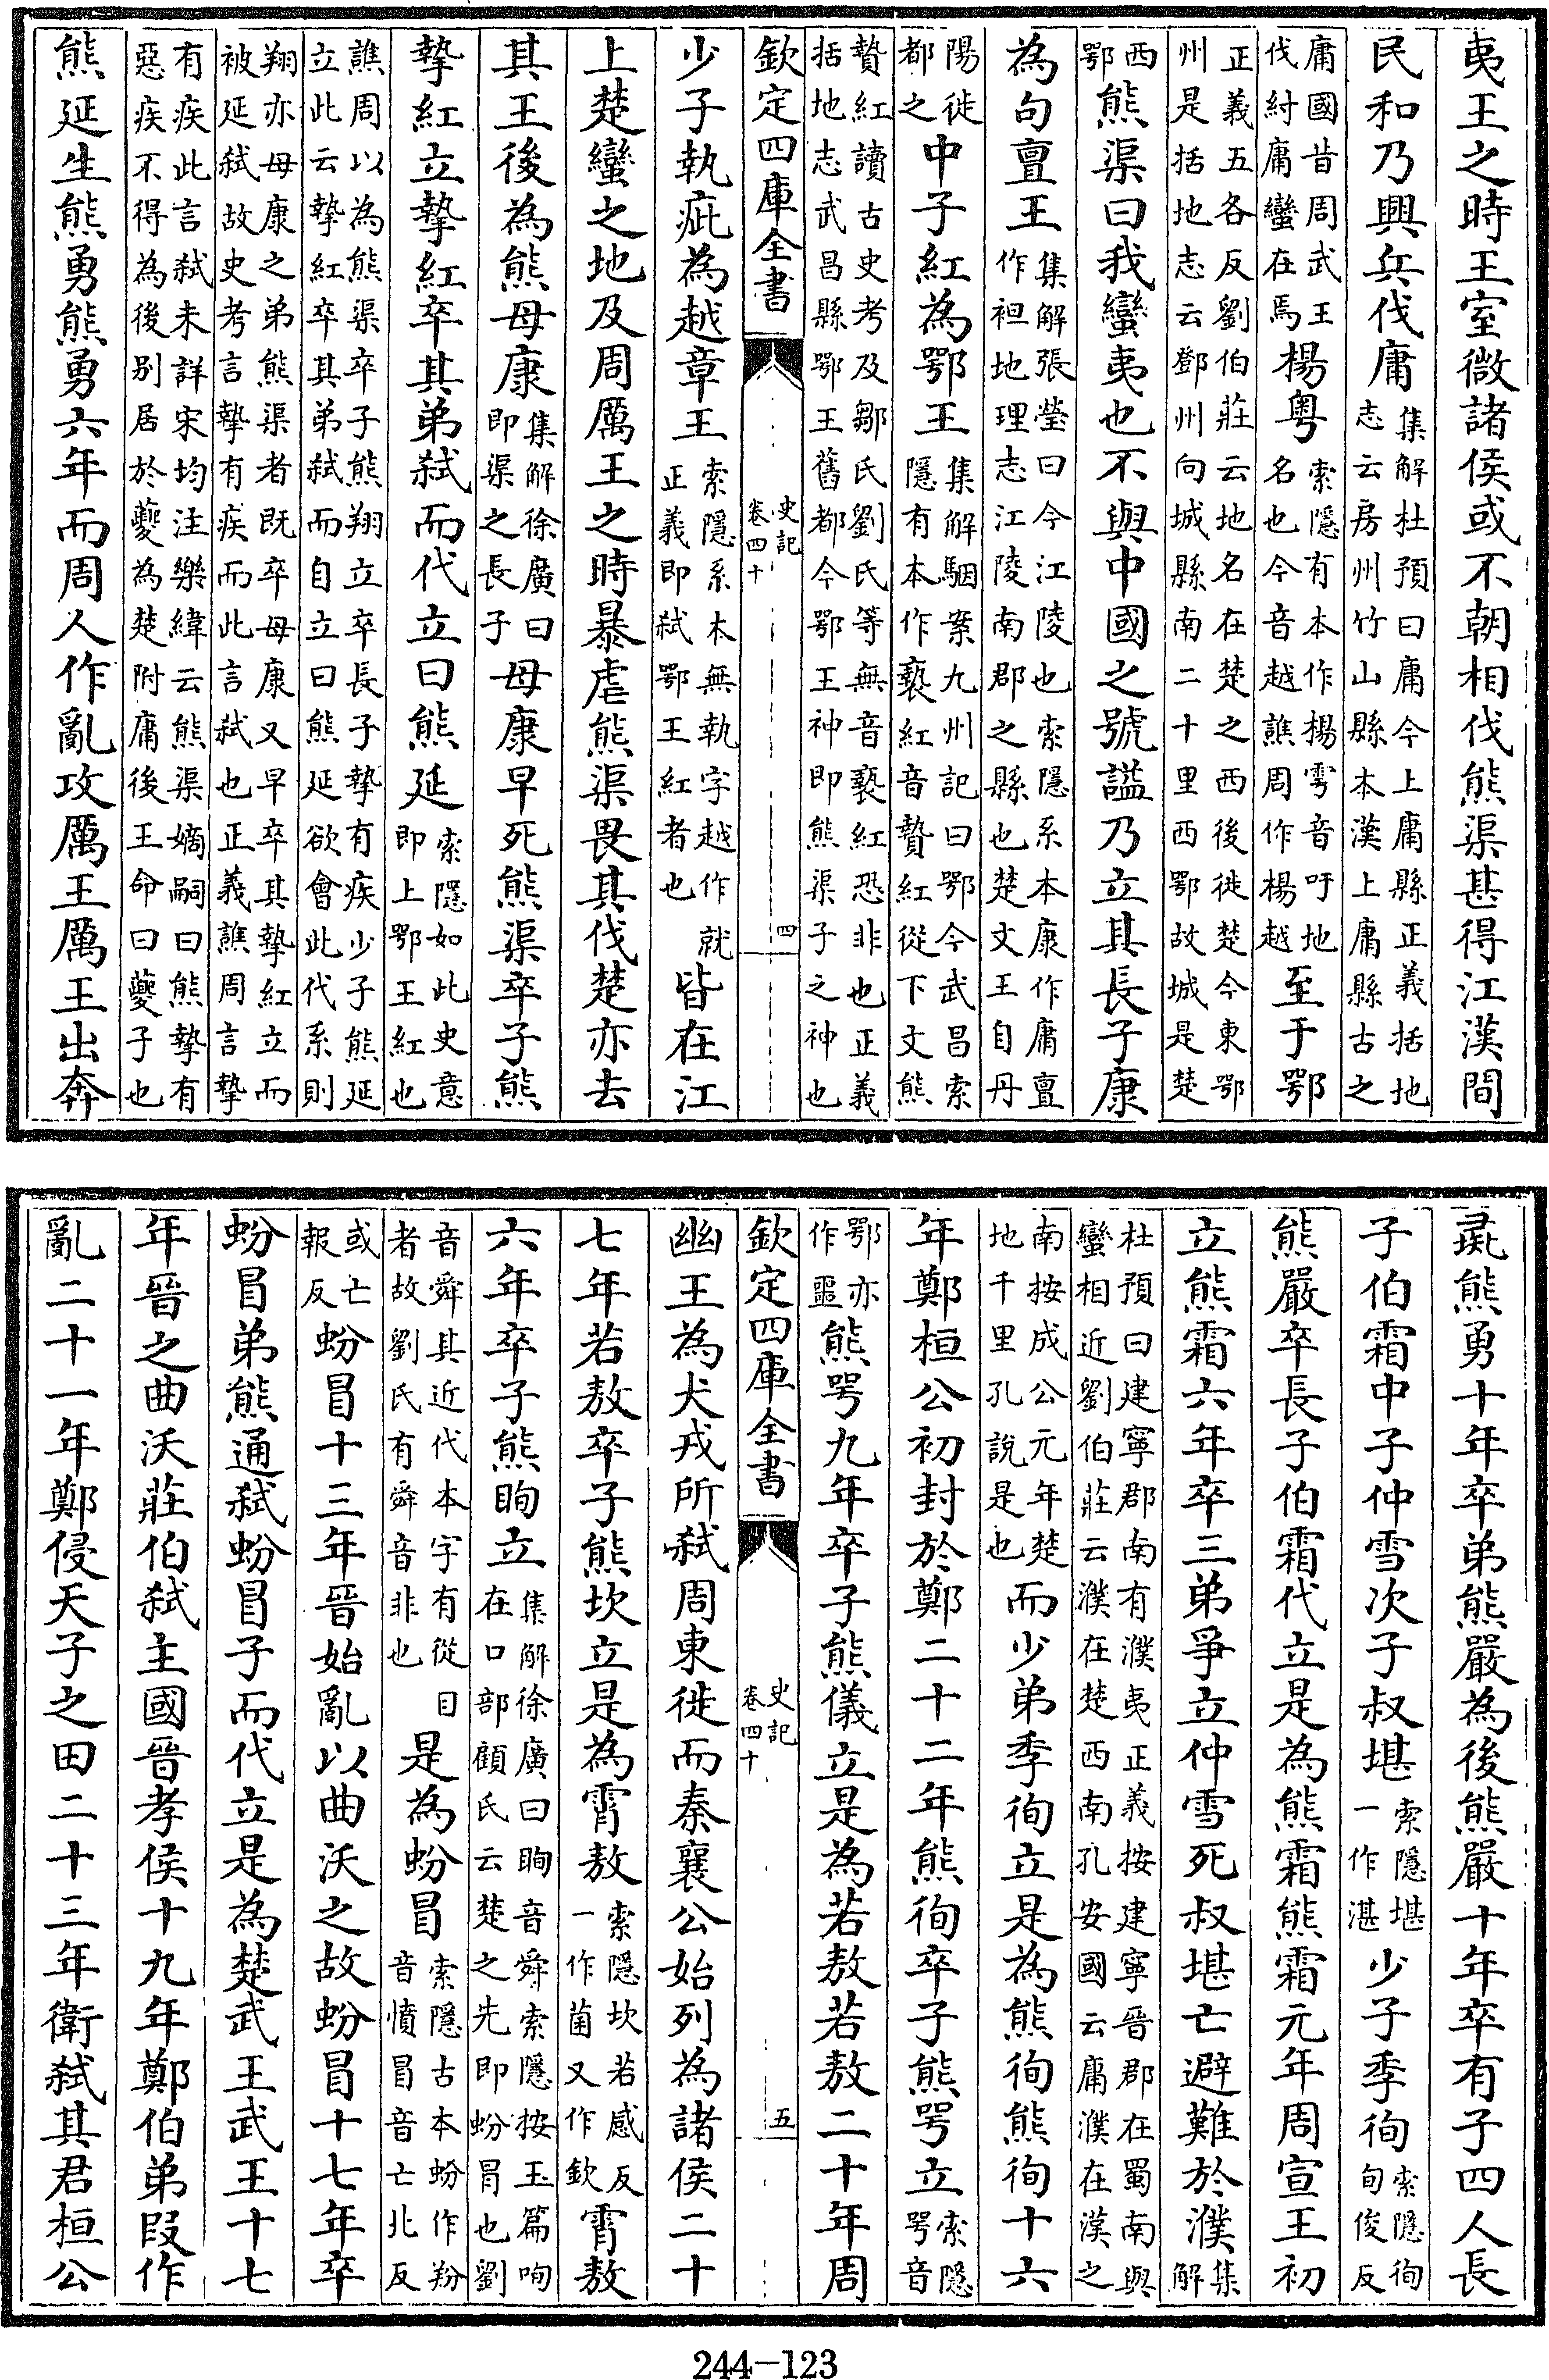 夷王之時王室微諸侯或不朝相伐熊渠甚得江漢間
民和乃興兵伐庸集解杜預曰庸今上庸縣正義括地志云房州竹山縣本漢上庸縣古之
庸國昔周武王伐紂庸蠻在焉楊粤索隱有本作楊雩音吁地名也今音越譙周作楊越至于鄂
正義五各反劉伯莊云地名在楚之西後徙楚今東鄂州是括地志云鄧州向城縣南二十里西鄂故城是楚
西鄂熊渠曰我蠻夷也不與中國之號諡乃立其長子康
為句亶王集解張瑩曰今江陵也索隱系本康作庸亶作袒地理志江陵南郡之縣也楚文王自丹
陽徙都之中子紅為鄂王集解駰案九州記曰鄂今武昌索隱有本作褻紅音贄紅從下文熊
贄紅讀古史考及鄒氏劉氏等無音褻紅恐非也正義括地志武昌縣鄂王舊都今鄂王神即熊渠子之神也
欽定四庫全書 史記卷四十 四
少子執疵為越章王索隱系本無執字越作就正義即弑鄂王紅者也皆在江
上楚蠻之地及周厲王之時暴虐熊渠畏其伐楚亦去
其王後為熊母康集解徐廣曰即渠之長子母康早死熊渠卒子熊
摯紅立摯紅卒其弟弑而代立曰熊延索隱如此史意即上鄂王紅也
譙周以為熊渠卒子熊翔立卒長子摯有疾少子熊延立此云摯紅卒其弟弑而自立曰熊延欲會此代系則
翔亦母康之弟熊渠者既卒母康又早卒其摯紅立而被延弑故史考言摯有疾而此言弑也正義譙周言摯
有疾此言弑未詳宋均注樂緯云熊渠嫡嗣曰熊摯有惡疾不得為後别居於夔為楚附庸後王命曰夔子也
熊延生熊勇熊勇六年而周人作亂攻厲王厲王出奔
彘熊勇十年卒弟熊嚴為後熊嚴十年卒有子四人長
子伯霜中子仲雪次子叔堪索隱堪一作湛少子季徇索隱徇旬俊反
熊嚴卒長子伯霜代立是為熊霜熊霜元年周宣王初
立熊霜六年卒三弟爭立仲雪死叔堪亡避難於濮集解
杜預曰建寧郡南有濮夷正義按建寧晉郡在蜀南與蠻相近劉伯莊云濮在楚西南孔安國云庸濮在漢之
南按成公元年楚地千里孔說是也而少弟季徇立是為熊徇熊徇十六
年鄭桓公初封於鄭二十二年熊徇卒子熊咢立索隱咢音
鄂亦作噩熊咢九年卒子熊儀立是為若敖若敖二十年周
欽定四庫全書 史記卷四十 五
幽王為犬戎所弑周東徙而秦襄公始列為諸侯二十
七年若敖卒子熊坎立是為霄敖索隱坎若感反一作菌又作欽霄敖
六年卒子熊眴立集解徐廣曰眴音舜索隱按玉篇呴在口部顧氏云楚之先即蚡冒也劉
音舜其近代本字有從目者故劉氏有舜音非也是為蚡冒索隱古本蚡作羒音憤冒音亡北反
或亡報反蚡冒十三年晉始亂以曲沃之故蚡冒十七年卒
蚡冒弟熊通弑蚡冒子而代立是為楚武王武王十七
年晉之曲沃莊伯弑主國晉孝侯十九年鄭伯弟段作
亂二十一年鄭侵天子之田二十三年衛弑其君桓公
244-123